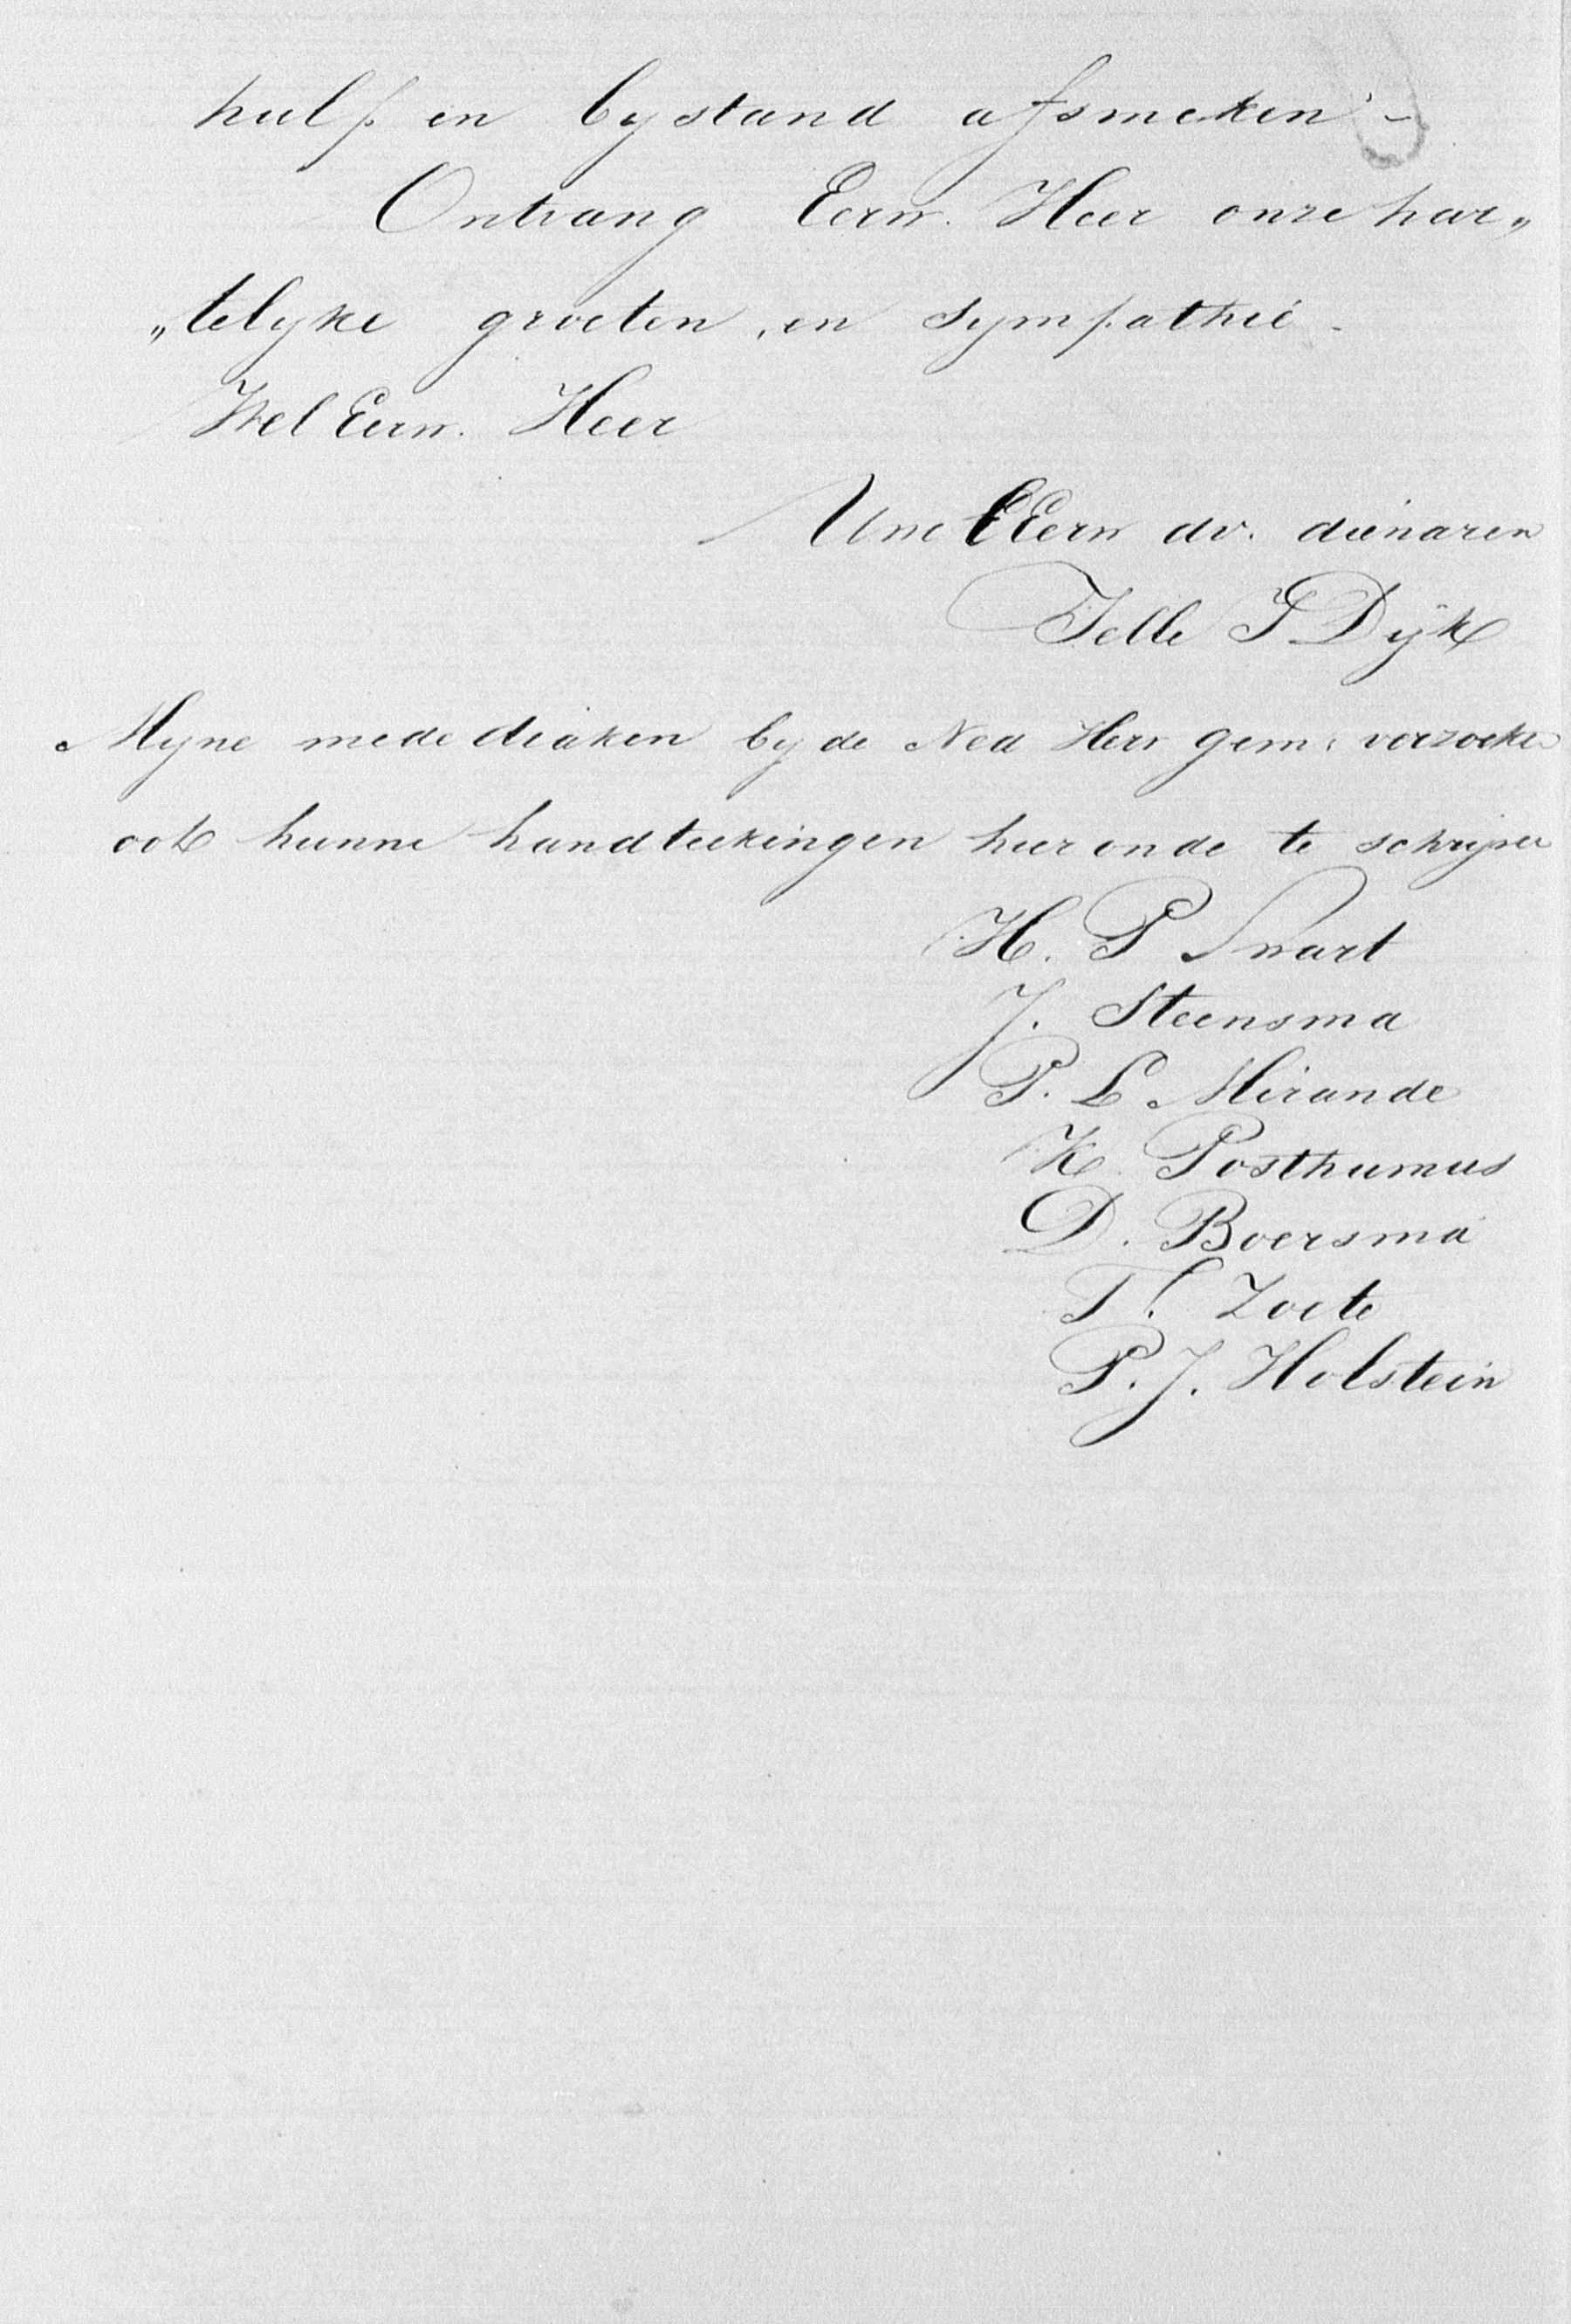 hulp en bystand afsmeken -
Ontvang Eerw. Heer onze har„
„telyke groeten, en sympathie -
Wel Eerw. Heer
Uwe EEerw dv. dienaren
Jelle J Dijk
Myne mede diaken by de Ned Herv gem: verzoeke
ook hunne handteekingen hier onde te schryve
H. P Swart
J. Steensma
P. L. Mirande
K. Posthumus
D. Boersma
T. Zoete
P. J. Holstein